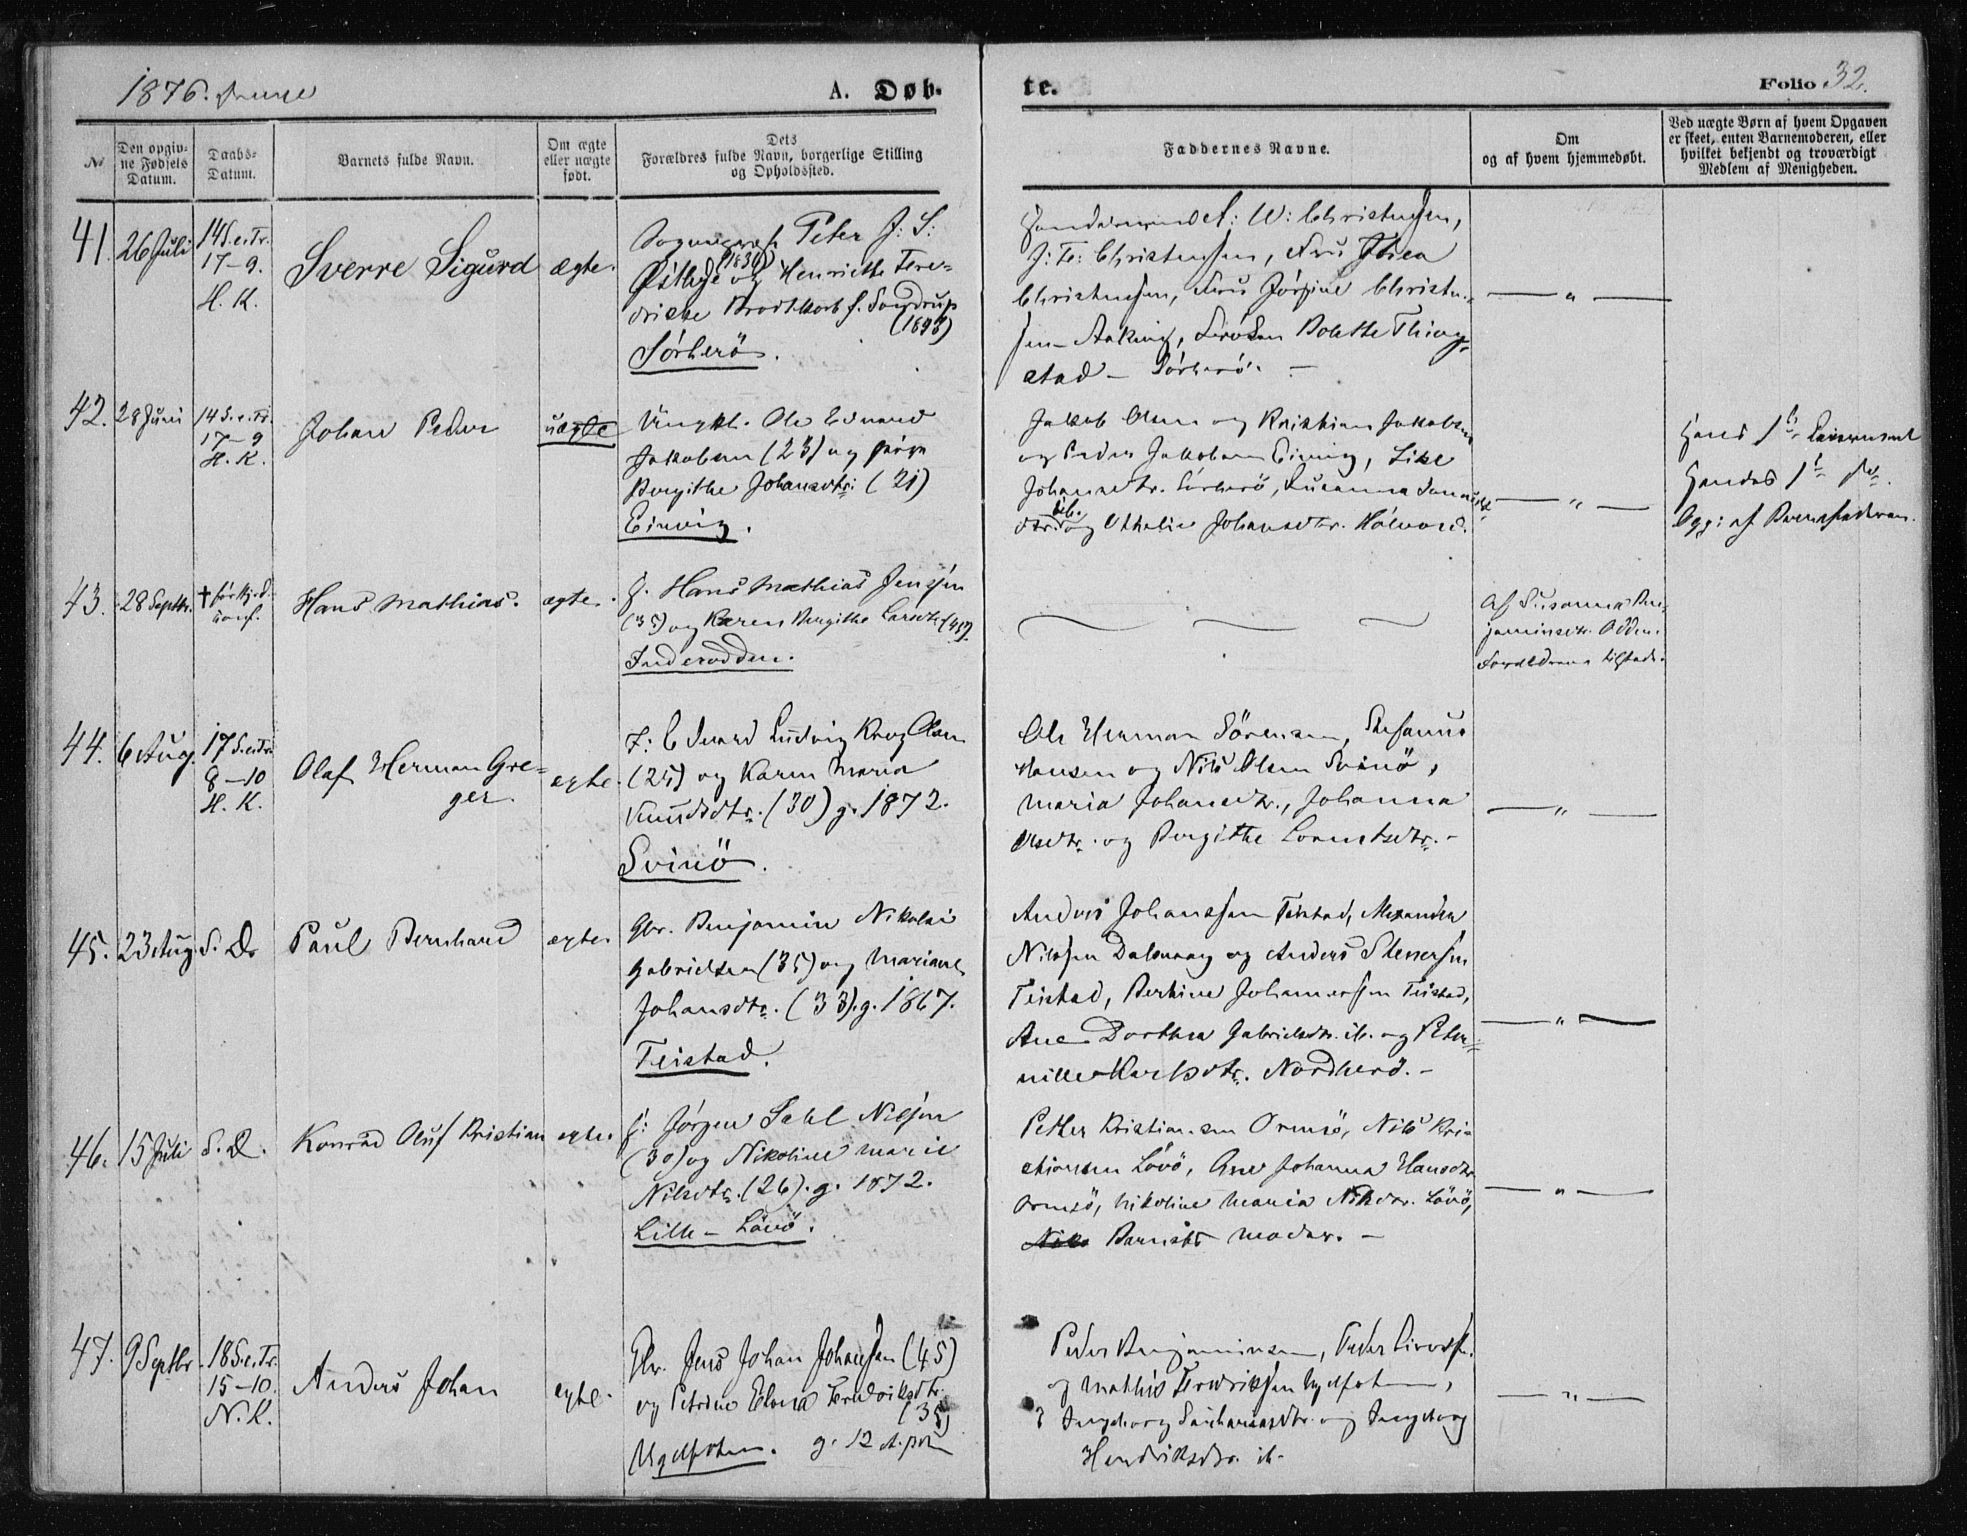 1876.
A. Døb-
te.
Folio 32.
No
Den opgiv-
ne Fødsels
Datum.
Daabs-
Datum.
Barnets fulde Navn.
Om ægte
eller uægte
født.
Dets
Forældres fulde Navn, borgerlige Stilling
og Opholdssted.
Faddernes Navne.
Om
og af hvem hjemmedøbt.
Ved uægte Børn af hvem Opgaven
er skeet, enten Barnemoderen, eller
hvilket bekjendt og troværdigt
Medlem af Menigheden.
41.
26 Juli
14 S. e. Tr.
17-9.
H. K.
Sverre Sigurd
ægte.
Sognepræst Peter J: S:
og Henriette Fre-
drikke Brodtkorb f. Sondrup
Sørherö.
A: W: Christensen,
J: F: Christensen, Fru Thea
Christensen, Fru Jørgine Christen-
sen, Frøken Bolette Thing-
stad - Sørherö. -
— " —
42.
28 Juni
14 S. e. Tr.
17-9
H. K.
Johan Peder
uægte
Ungkl. Ole Edvard
Jakobsen (23) og
Bergithe Johansdtr: (21)
Einvig.
Jakob Olsen og Kristian Jakobsen
og Peder Jakobsen Einvig, Lise
Johansdtr. Sørherö, Susanna
ib.
og Othelie Johansdtr.
— " —
Hans 1ste Leiermaal
Hendes 1ste do.
Opg: af Barnefaderen.
43.
28 Septbr.
Hans Mathias.
ægte.
Hans Mathias Jenssen
(35) og Karen Bergithe Larsdtr
Inderodden.
Af Susanna Ben-
jaminsdtr. Odden.
Forældrene tilstede.
44.
6 Aug.
17 S. e. Tr.
8-10
H. K.
Olaf Herman Gre-
ger.
ægte.
Edvard Ludvig Krog Olsen
(25) og Karen Maria
Knudsdtr. (30) g. 1872.
Svinö.
Ole Herman Sörensen, Stefanus
Hansen og Nils Olsen Svinö,
Maria Johansdtr., Johanna
Olsdtr. og Bergithe Lorentsdtr. -
— " —
45.
23 Aug.
S. D.
Paul Bernhard
ægte.
Gbr. Benjamin Nikolai
Gabrielsen (35) og Mariane
Johansdtr. (33). g. 1867.
Teistad.
Anders Johanssen Teistad, Alexander
Nilssen Dalsvaag og Anders
Teistad, Berhine Johannessen Teistad,
Ane Dorthea Gabrielsdtr. ib. og Peter-
nille Karlsdtr. Nordherö. -
— " —
46.
15 Juli
S. D.
Konrad Oluf Kristian
ægte.
Jørgen Sahl Nilsen
(30) og Nikoline Marie
Nilsdtr. (26). g. 1872.
Lille - Lövö.
Petter Kristiansen Ormsö, Nils Kri-
stiansen Lövö, Ane Johanna Hansdtr.
Ormsö, Nikoline Maria Nilsdtr. Lövö,
Barnets Moder. -
— " —
47.
9 Septbr
18 S. e. Tr.
15-10.
N. K.
Anders Johan
ægte.
Gbr. Jens Johan Johansen (45)
og Petrine Elena Fredriksdtr.
(35)
g. 12
Peder Benjaminsen, Peder
og Mathis Fredriksen
Ingeborg Zachariasdtr. og Ingeborg
Hendriksdtr. ib.
— " —